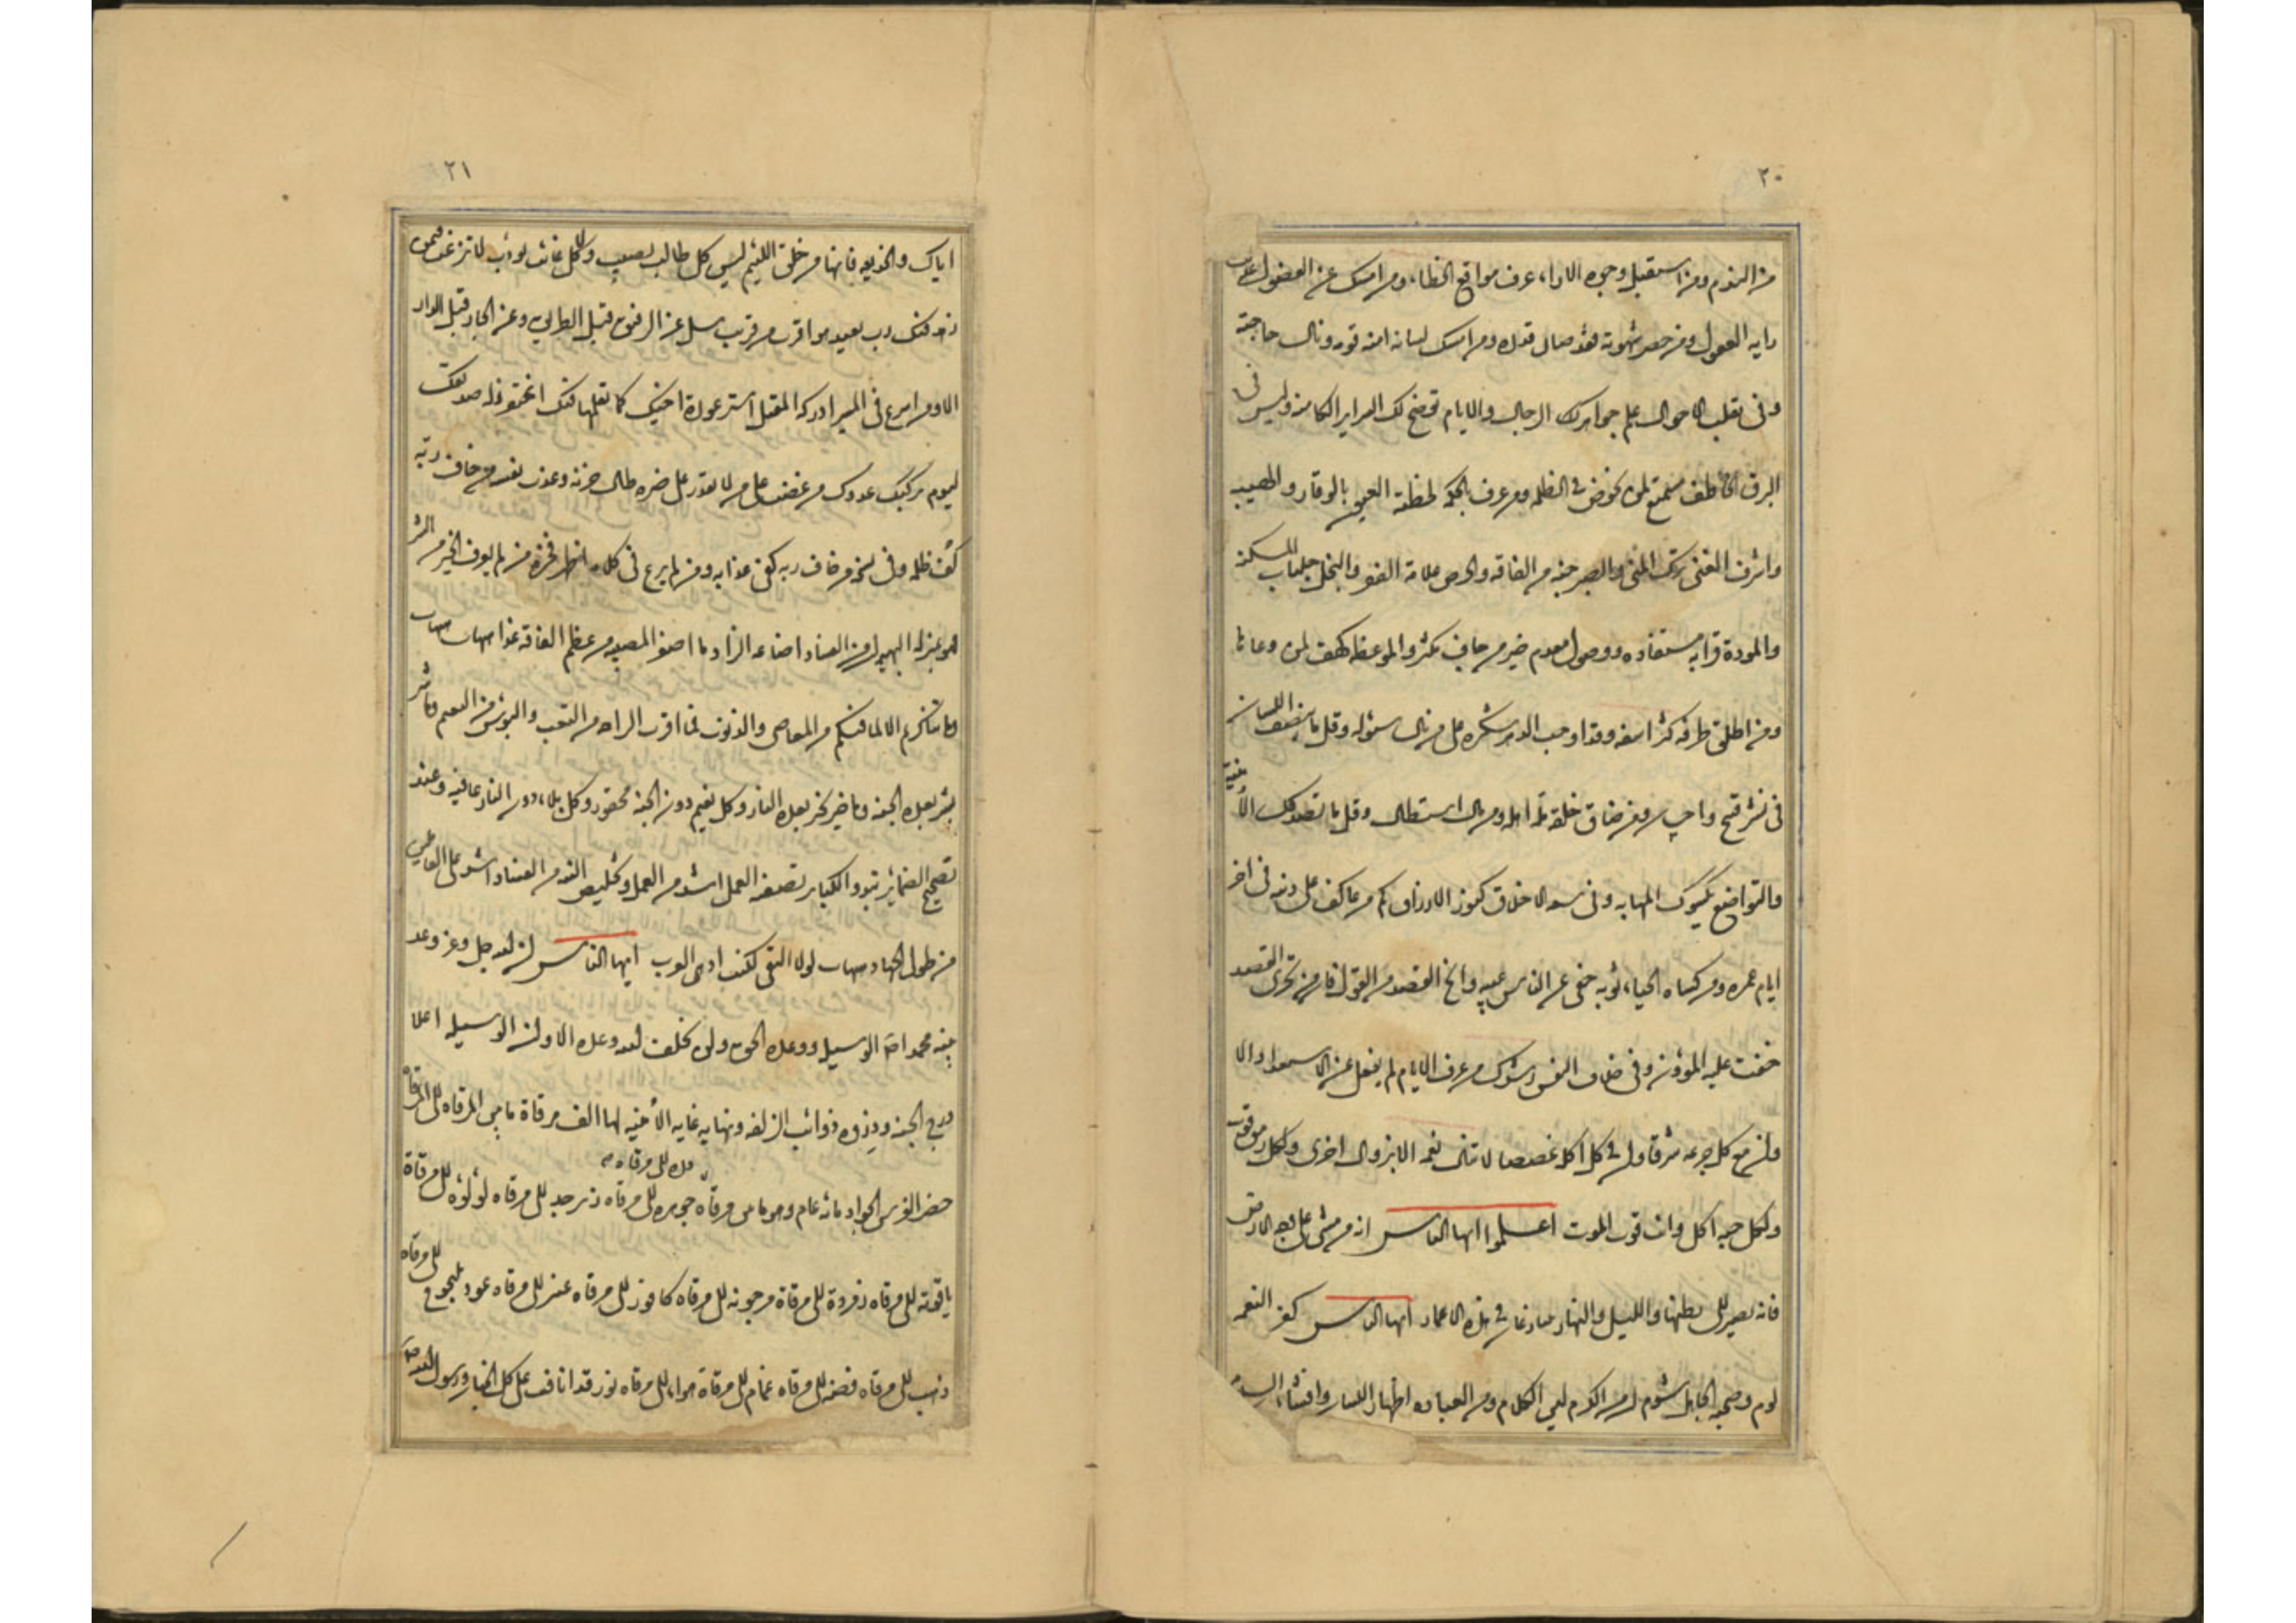 ٢٠
من الندم ومن استقبل وجوه الاراء عرف مواقع الخطاء ومن امسک عن الفضول عدلت
رایه العقول ومن حصر شهوته فقد صان قدره ومن امسک لسانه امنه قومه ونال حاجته
وفی تقلب الاحوال علم جواهر الرجال والایام توضح لک السرایر الکامنه ولیس فی
البرق الخاطف مستمتع لمن یخوض فی الظلمه ومن عرف بالحکمه لحظته العیون بالوقار والهیبه
واشرف الغنی ترک المنی والصبر جنه من الفاقه والحرص علامة الفقر والبخل جلباب المسکنه
والمودة قرابه مستفاده ووصول معدم خیر من جاف مکثر والموعظه کهف لمن وعاها
ومن اطلق طرفه کثر اسفه وقد اوجب الدهر شکره علی من نال سؤله وقل ما ینصفک اللسان
فی نشر قبیح او احسان ومن ضاق خلقه مله اهله ومن نال استطال وقل ما تصدقک الأمنیة
والتواضع یکسوک المهابه وفی سعه الاخلاق کنوز الارزاق کم من عاکف علی ذنبه فی اخر
ایام عمره ومن کساه الحیاء ثوبه خفی عن الناس عیبه وانح القصد من القول فان من تحری القصد
خفت علیه المؤن وفی خلاف النفس رشدک من عرف الایام لم یغفل عن الاستعداد الا
وان مع کل جرعه شرقا وان فی کل اکله غصصا لا تنال نعمه الا بزوال اخری ولکل رمق قوت
ولکل حبه اکل وانت قوت الموت اعلموا ایها الناس انه من مشی علی وجه الارض
فانه یصیر الی بطنها واللیل والنهار یتنازعان فی هدم الاعمار ایها الناس کفر النعمه
لوم وصحبه الجاهل شوم ان من الکرم لین الکلام ومن العباده اظهار اللسان وافشاء السلام
٢١
ایاک والخدیعه فانها من خلق اللئیم لیس کل طالب یصیب ولا کل غائب یؤب لا ترغب فیمن
زهد فیک رب بعید هو اقرب من قریب سل عن الرفیق قبل الطریق وعن الجار قبل الدار
الا ومن اسرع فی المسیر ادرکه المقیل استر عورة اخیک کما تعلمها فیک اغتفر زلة صدیقک
لیوم یرکبک عدوک من غضب علی من لا یقدر علی ضره طال حزنه وعذب نفسه من خاف ربه
کف ظلمه وفی نسخه من خاف ربه کفی عذابه ومن لم یرع فی کلامه اظهر فخره من لم یعرف الخیر من الشر
فهو بمنزله البهیمه ان من الفساد اضاعه الزاد ما اصغر المصیبه مع عظم الفاقه غدا هیهات هیهات
وما تناکرتم الا لما فیکم من المعاصی والذنوب فما اقرب الراحه من التعب والبوس من النعیم وما شر
بشر بعده الجنه وما خیر بخیر بعده النار وکل نعیم دون الجنه محقور وکل بلاء دون النار عافیه وعند
تصحیح الضمائر تبدو الکبایر تصفیه العمل اشد من العمل وتخلیص النیه من الفساد اشد علی العاملین
من طول الجهاد هیهات لولا التقی لکنت ادهی العرب ایها الناس ان الله جل وعز وعد
نبیه محمدا صم الوسیله ووعده الحق ولن یخلف الله وعده الا وان الوسیله اعلا
درج الجنه وذروه ذوائب الزلفه ونهایه غایه الأمنیه لها الف مرقاة ما بین المرقاه الی المرقاه
حضر الفرس الجواد مائه عام وهو ما بین مرقاه جوهره الی مرقاه زبرجد الی مرقاه لؤلؤه الی مرقاة
دره الی مرقاه
یاقوته الی مرقاه زمردة الی مرقاة مرجونه الی مرقاه کافور الی مرقاه عنبر الی مرقاه عود یلنجوج الی مرقاه
ذهب الی مرقاه فضه الی مرقاه غمام الی مرقاة هواء الی مرقاه نور قد انافت علی کل الجنان ورسول الله صم